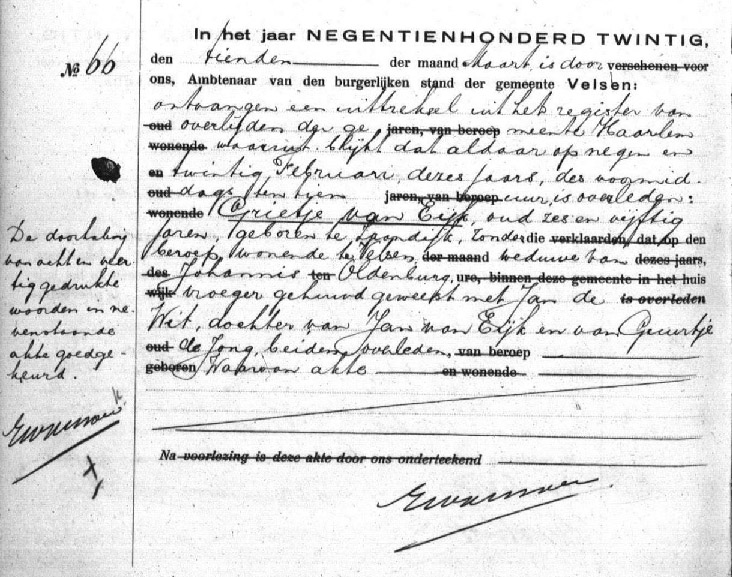 In het jaar NEGENTIENHONDERD TWINTIG,
№ 66
den tienden der maand Maart, is door verschenen voor
ons, Ambtenaar van den burgerlijken stand der gemeente Velsen:
ontvangen een uittreksel uit het register van
oud overlijden der ge jaren, van beroep meente Haarlem
wonende waaruit blijkt dat aldaar op negen en
en twintig Februari, dezes jaars, des voormid-
oud dags ten tien jaren, van beroep ure, is overleden:
wonende Grietje van Eijk, oud zes en vijftig
jaren, geboren te, zonder die verklaarden, dat op den
beroep, wonende te Velsen, der maand weduwe van dezes jaars,
des Johannis ten Oldenburg, ure, binnen deze gemeente in het huis
wijk vroeger gehuwd geweest met Jan de is overleden
Wit, dochter van Jan van Eijk en van Geertje
oud de Jong, beiden overleden, van beroep
geboren Waarvan akte en wonende
Na voorlezing is deze akte door ons onderteekend
De doorhaling
van acht en veer
tig gedrukte
woorden in ne-
venstaande
akte goedge-
keurd.